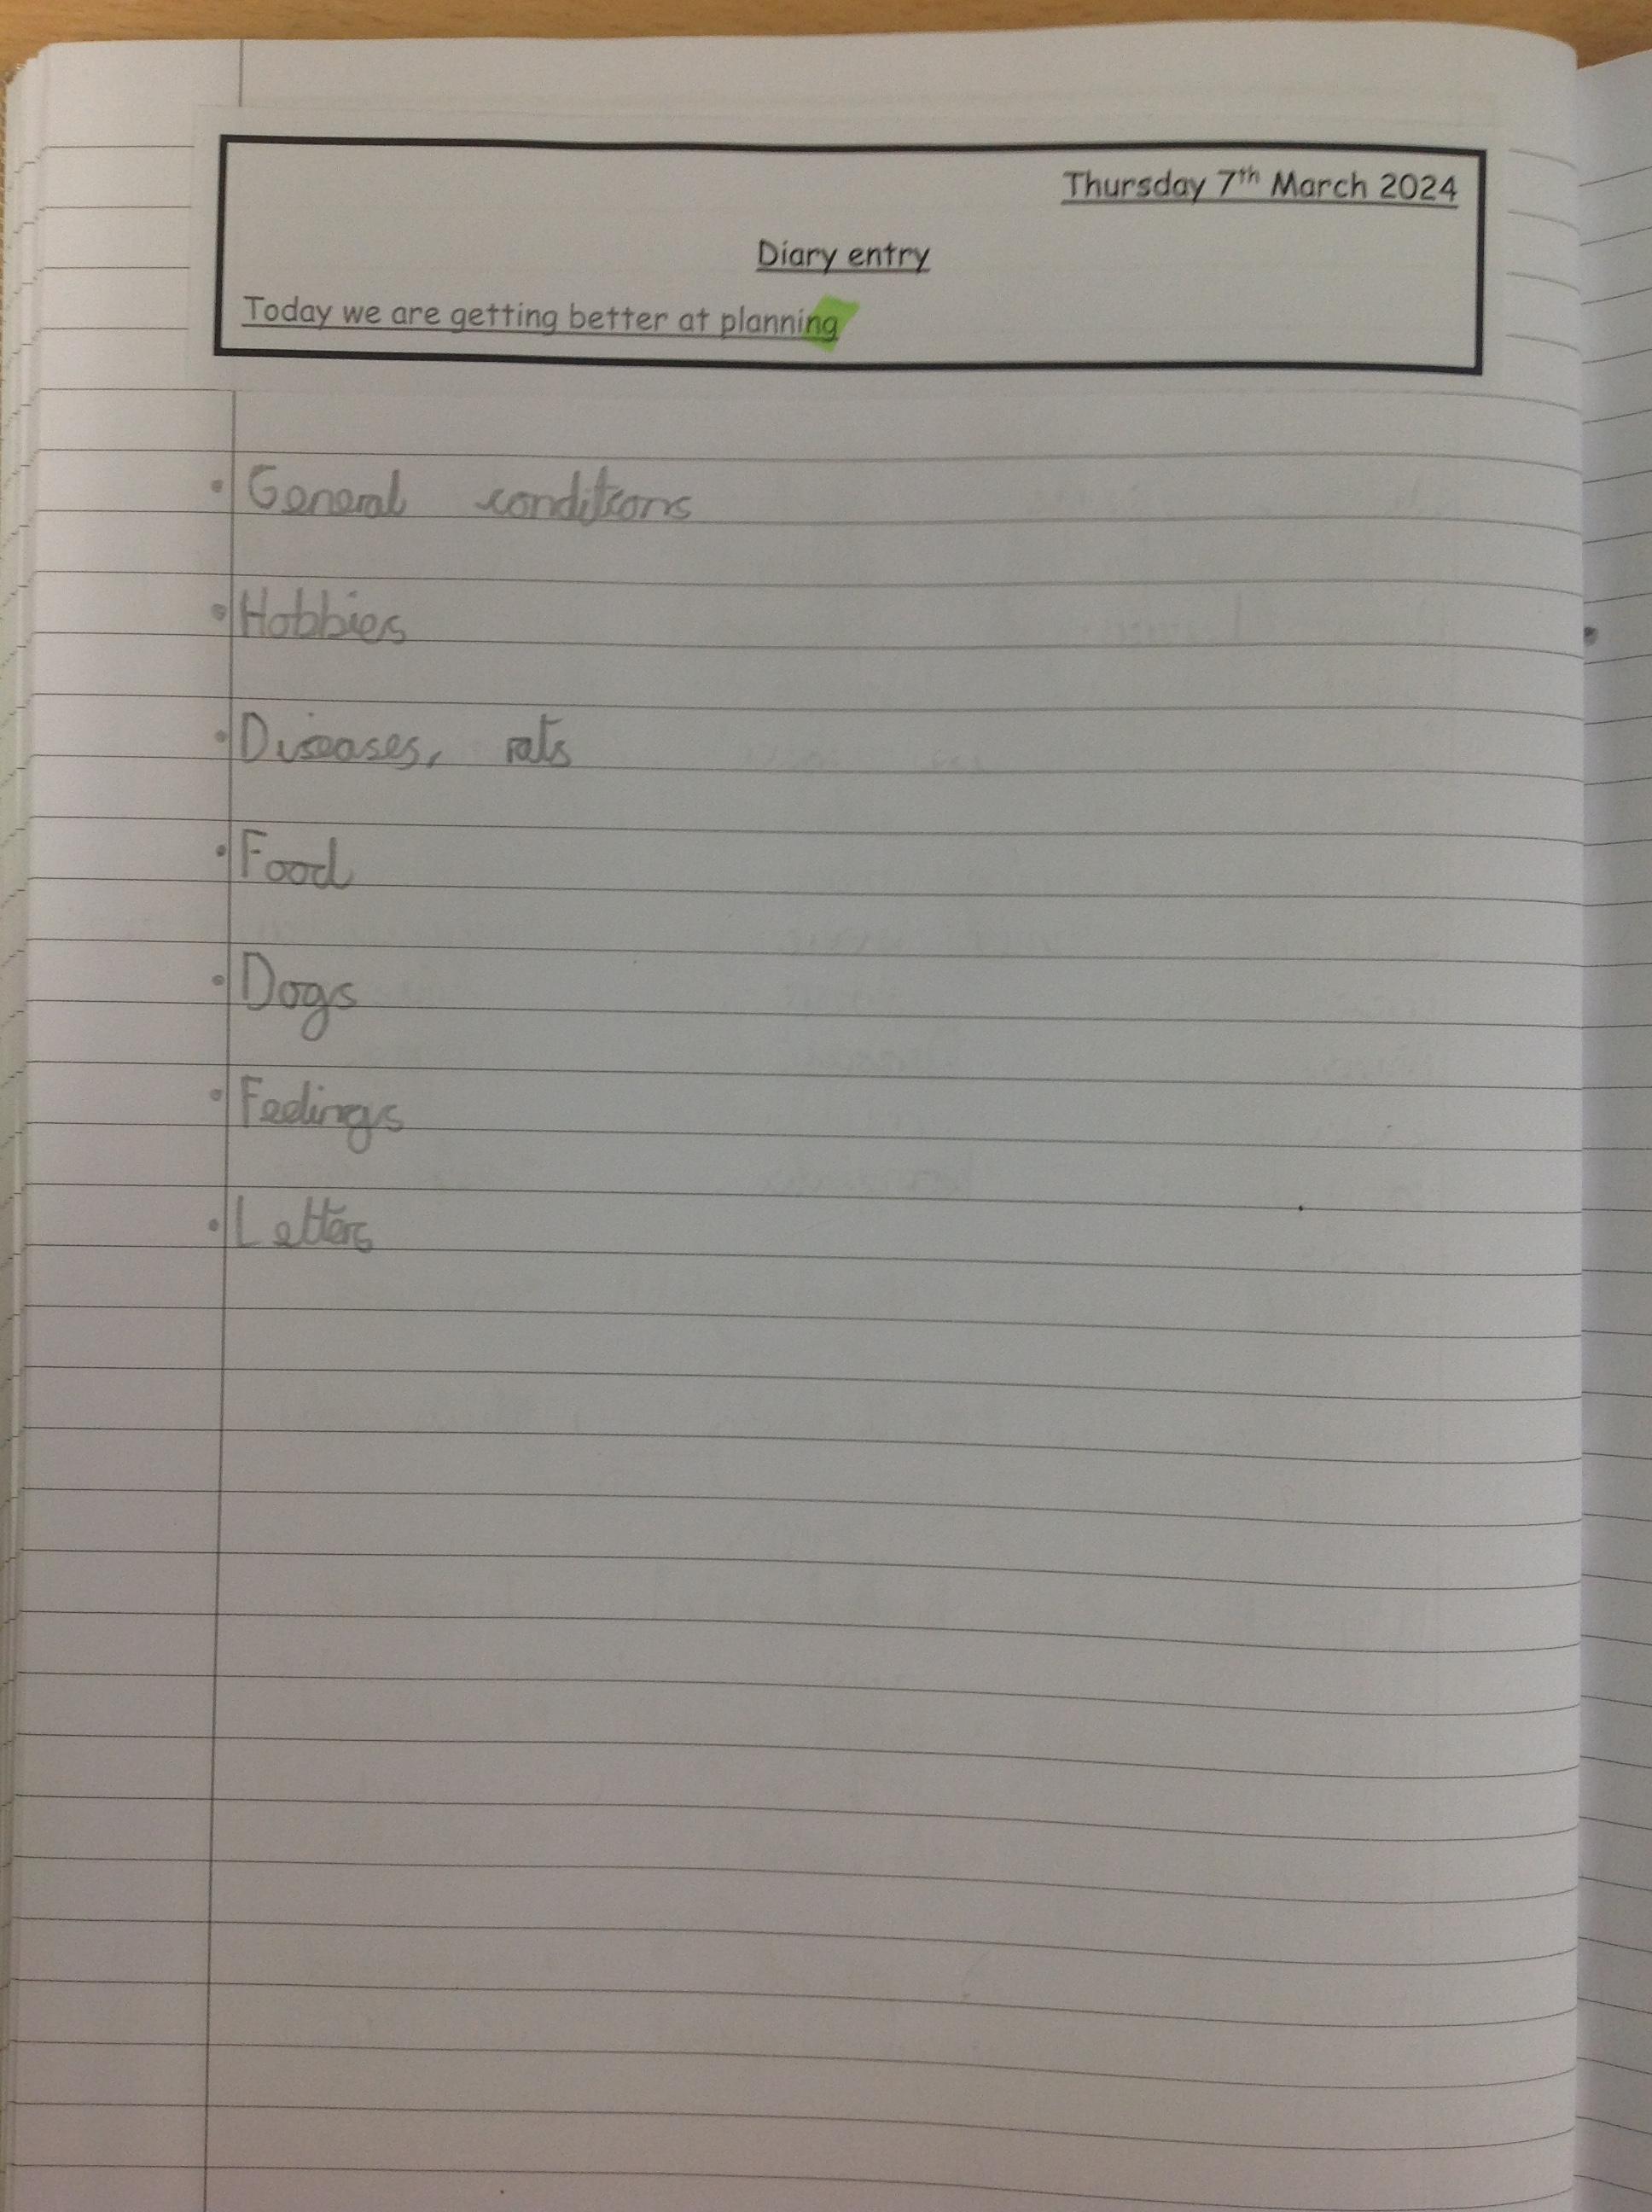 Thursday 7th March 2024
Diary entry
Today we are getting better at planning
• General conditions
• Hobbies
• Diseases, rats
• Food
• Dogs
• Feelings
• Letters